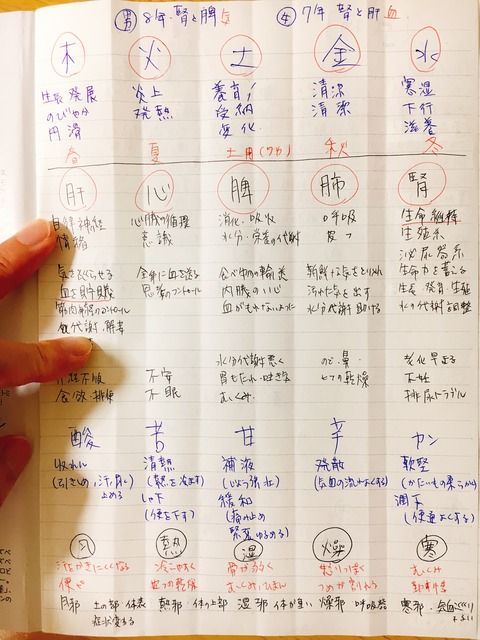 男 8年 腎と脾 気 女 7年 腎と肝 血
木 火 土 金 水
生長 発展 炎上 養育 清涼 寒湿
のびやか 発熱 受納 清潔 下行
円滑 変化 滋養
春 夏 土用 秋 冬
肝 心 脾 肺 腎
自律神経 心臓の循環 消化・吸収 呼吸 生命維持
情緒 意識 水分・栄養の代謝 皮フ 生殖系
泌尿器系
気をめぐらせる 全身に血を送る 食べ物の輸送 新鮮な気をとり入れ 生命力を蓄える
血を貯蔵 思考のコントロール 内臓の 汚れた気を出す 生長・発育・生殖
筋肉 のコントロール 血がもれないように 水分代謝助ける 水の代謝 調整
代謝・解毒
水分代謝悪く のど・鼻 老化早まる
不安 胃もたれ・吐き気 ヒフの乾燥 不妊
不眠 むくみ 排尿トラブル
酸 苦 甘 辛 カン
収れん 清熱 補液 発散 軟堅
(引きしめ、汗、尿 (熱を冷ます) (気血の流れよくする) (かたいもの柔らかく)
止める しゃ下 緩和 潤下
(便を下す) (痛み止め (便通よくする)
緊張ゆるめる)
風 熱 湿 燥 寒
むくみ
便 むくみ つめが割れる
風邪 熱邪 体の上部 湿邪 燥邪 呼吸器 寒邪
症状変わる